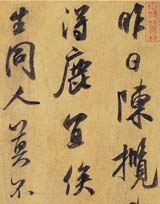 昨日陳攬
得鹿宜俟
生同人莫不